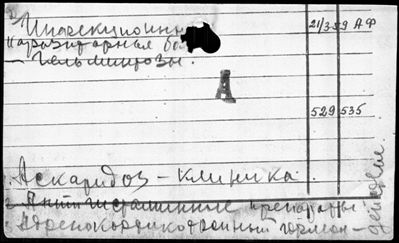 Инфекционн
паразитарные бо
— гельминтозы.
21/3 59 АФ
А
529 535
Аскаридоз – клиника.
2. Антигистаминные препараты.
Адренокортикотропный гормон – действие.